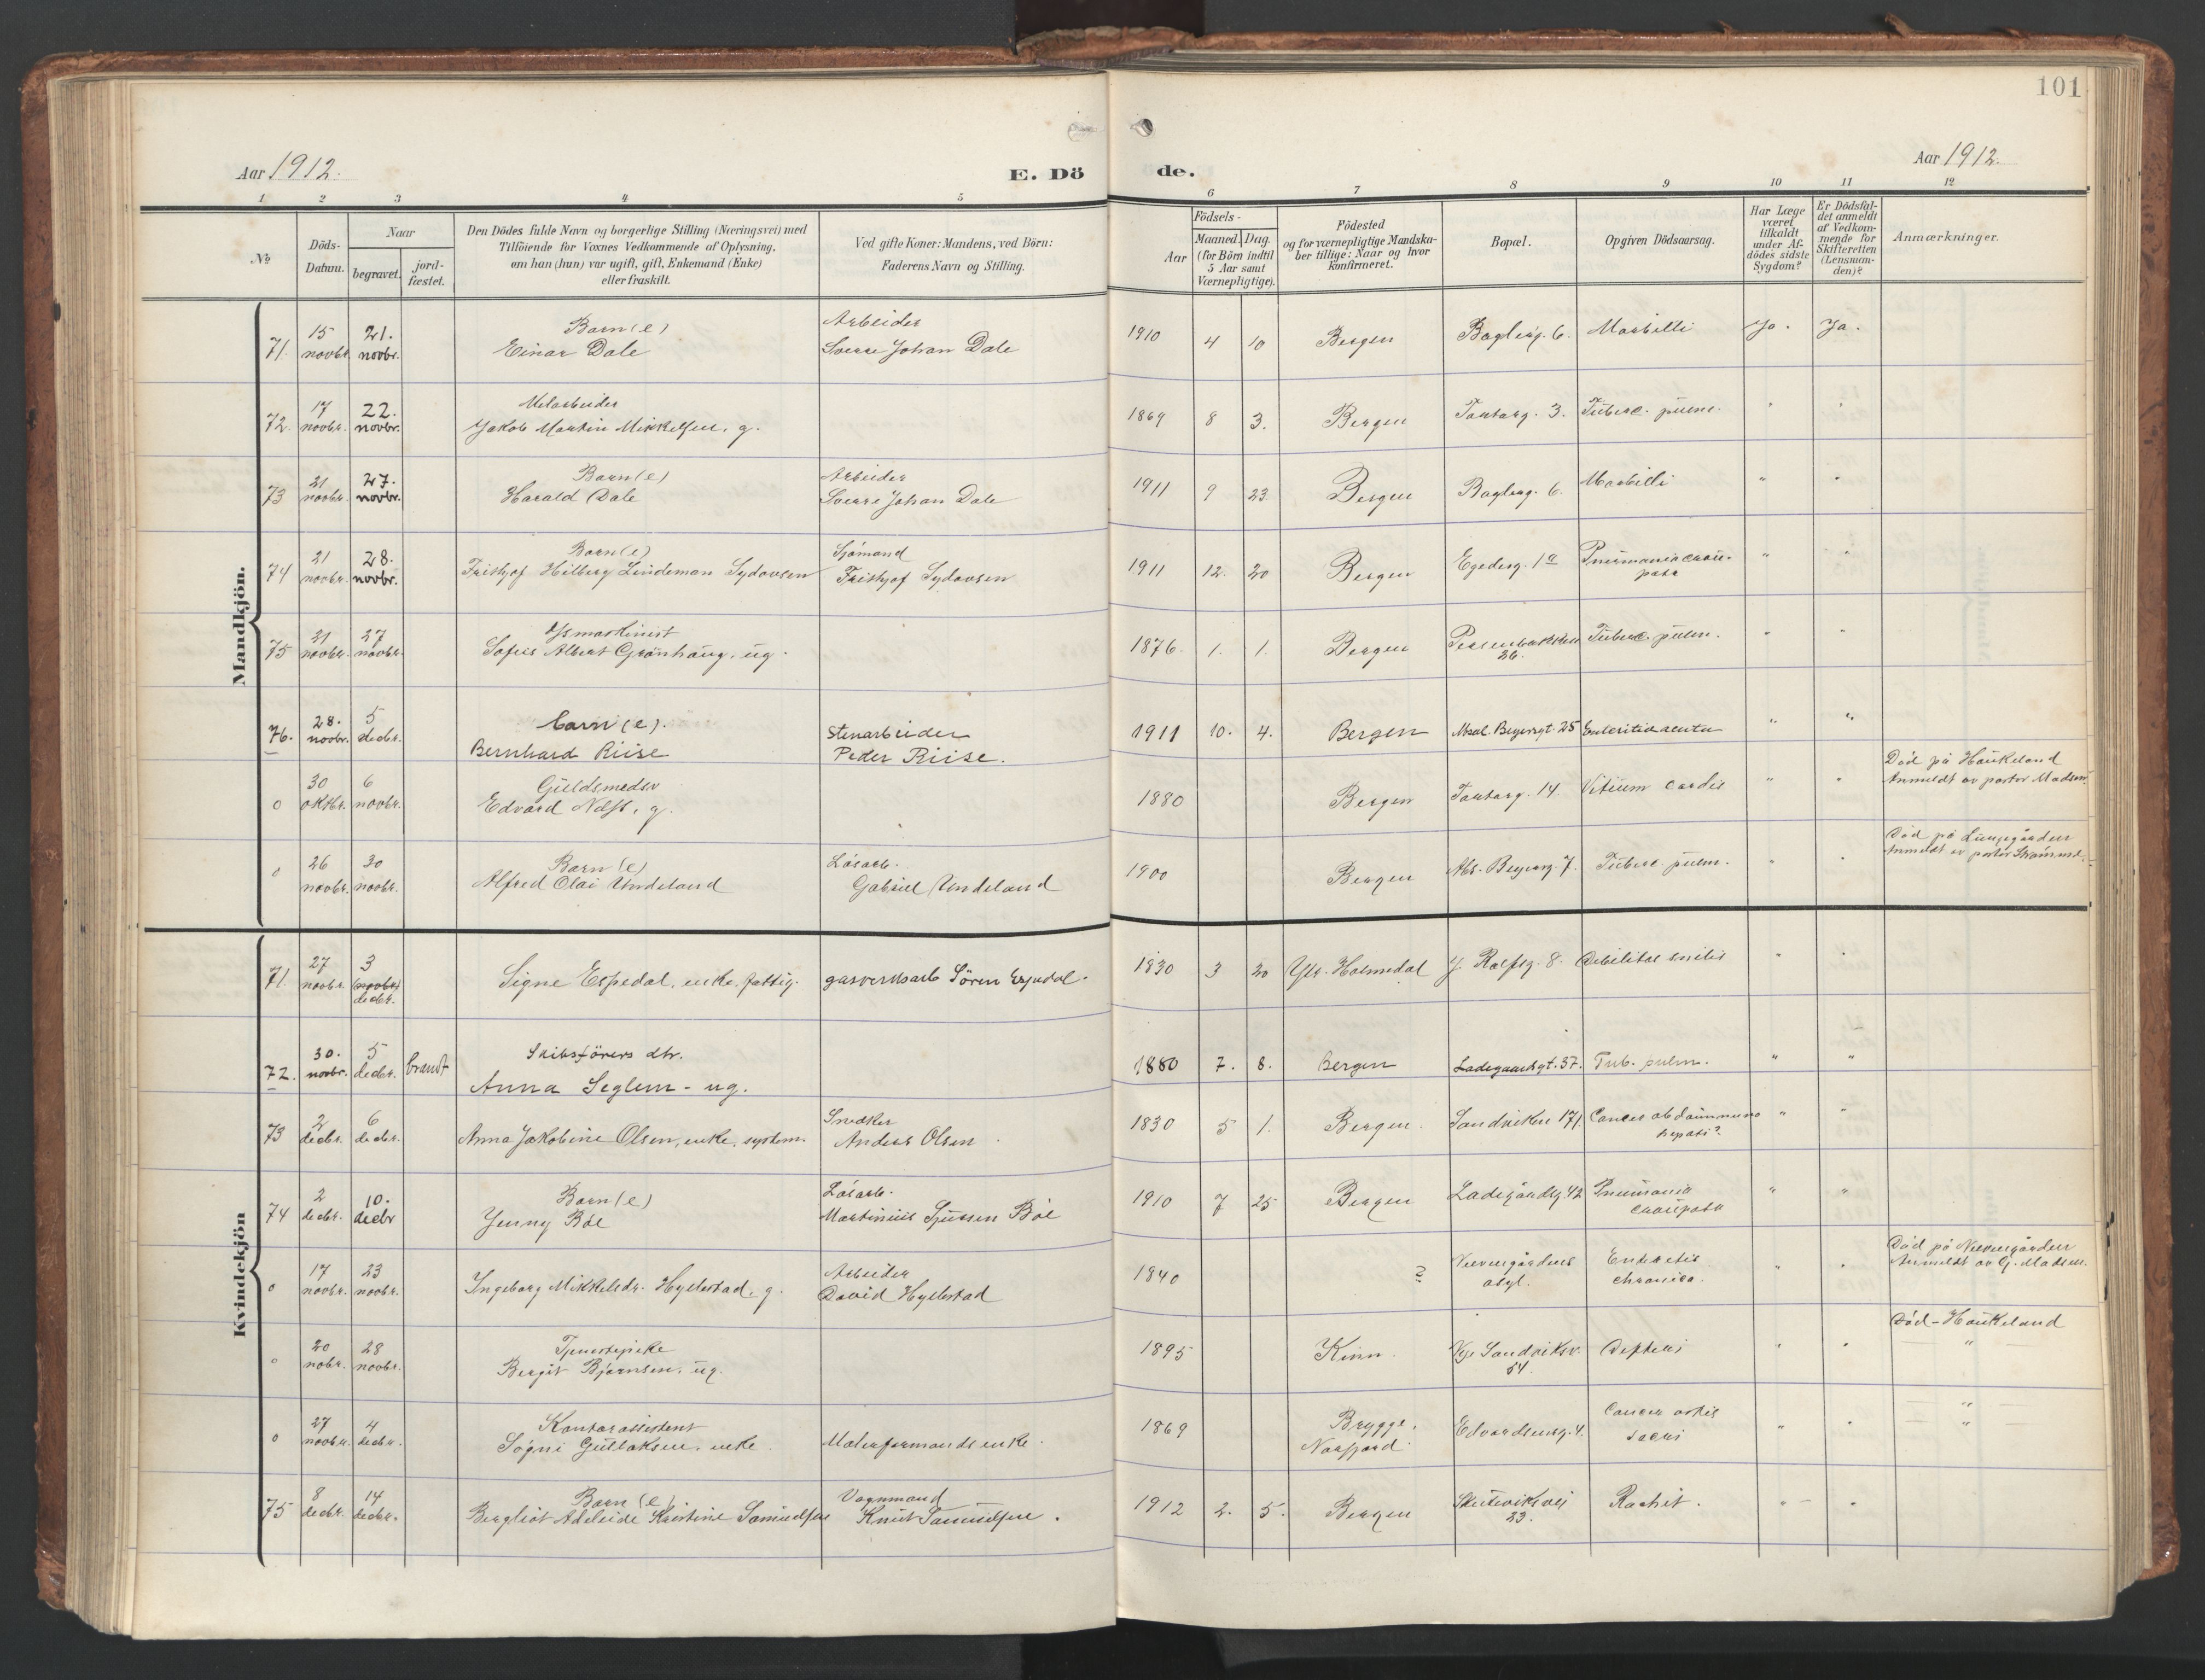 101
Aar 1912.
E. Dö de.
Aar 1912.
1 2 3 4 5 6 7 8 9 10 11 12
No
Döds-Datum.
Naar
begravet.
jord-fæstet.
Den Dödes fulde Navn og borgerlige Stilling (Næringsvei) med
Tilföiende for Voxnes Vedkommende af Oplysning,
om han (hun) var ugift, gift, Enkemand (Enke)
eller fraskilt.
Ved gifte Koner: Mandens, ved Börn:
Faderens Navn og Stilling.
Födsels-
Aar
Maaned. Dag.
(for Börn indtil
5 Aar samt
Værnepligtige).
Födested
og for værnepligtige Mandska-
ber tillige: Naar og hvor
konfirmeret.
Bopæl.
Opgiven Dödsaarsag.
Har Læge
været
tilkaldt
under Af-
dödes sidste
Sygdom?
Er Dödsfal-
det anmeldt
af Vedkom-
mende for
Skifteretten
(Lensman-
den)?
Anmærkninger.
Mandkjön.
71. 15 novbr. 21. novbr. Barn (e) Einar Dale Arbeider Sverre Johan Dale 1910 4 10 Bergen Baglerg. 6. Morbilli Ja. Ja.
72. 17 novbr. 22. novbr. Jakob Martin Mikkelsen, g. 1869 8 3. Bergen Tartarg. 3. Tuberc. pulm. " "
73 21 novbr. 27. novbr. Barn (e) Harald Dale Arbeider Sverre Johan Dale 1911 9 23 Bergen Baglerg. 6. Morbilli " "
74 21 novbr. 28. novbr. Barn (e) Frithjof Hilberg Lindeman Sydovsen Sjömand Frithjof Sydovsen 1911 12. 20 Bergen Egedesg. 1a Pneumonia crou-
posa " "
75 21 novbr. 27 novbr. Sofus Albert Grönhaug, ug. 1876. 1. 1. Bergen 26. Tuberc. pulm. " "
76. 28. novbr. 5 decbr. barn (e). Bernhard Riise Stenarbeider Peder Riise. 1911 10. 4. Bergen Absal. Beyersgt. 25 Enteritis acuta " "
0 30 oktbr. 6 novbr. Guldsmedsv Edvard Næss, g. 1880 Bergen Tartarg. 14. Vitium cordis " " Död på Haukeland
Anmeldt av pastor Madsen.
0 26 novbr. 30 novbr. Barn (e) Alfred Olai Undeland Lösarb. Gabriel Undeland 1900 Bergen Abs. Beyersg. 7. Tuberc. pulm. " " Död på Lungegården
Anmeldt av pastor
Kvindekjön
71. 27 novbr. 3 (novbr) decbr. Signe Espedal, enke, fattig. gasverksarb Sören Espedal. 1830 3 20 Ytr. Holmedal Rolfsg. 8. Debilitas senilis " "
72. 30. novbr. 5 decbr. brandt Skibsförers dtr. Anna Seglem - ug. 1880 7. 8. Bergen Ladegaardsgt. 37. Tub. pulm. " "
73 2 decbr. 6 decbr. Anna Jakobine Olsen, enke, system. Snedker Anders Olsen 1830 5 1. Bergen. Sandviken 171. Cancer
hepatis? " "
74 2 decbr. 10. decbr Barn (e) Jenny Böe Lösarb. Martinius Sjursen Böe 1910 7 25 Bergen Ladegårdsg. 42 Pneumonia
crouposa " "
0 17 novbr. 23 novbr. Ingeborg Mikkelsdr. Hyllestad, g. Arbeider David Hyllestad 1840 ? asyl. chronica. " " Anmeldt av G. Madsen.
0 20 nobr. 28 novbr. Tjenestepike Bergit Bjørnsen, ug. 1895 Kinn. Nye Sandviksv. 54. Difteri " " Död - Haukeland
"
0 27 novbr. 4 decbr. Kontorassistent Sögni Gullaksen, enke Malerformands enke. 1869 Brygge,
Norfjord. Edvardsensg. 4. Cancer
sacri " " "
"
75 8 decbr. 14 decbr. Barn (e) Bergliot Adeleide Kristine Samuelsen Vognmand Knut Samuelsen. 1912 2. 5. Bergen Skuteviksvei 23. Rachit. " "